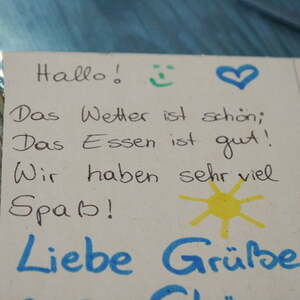 Hallo!
Das Wetter ist schön;
Das Essen ist gut!
Wir haben sehr viel
Spaß!
Liebe Grüße